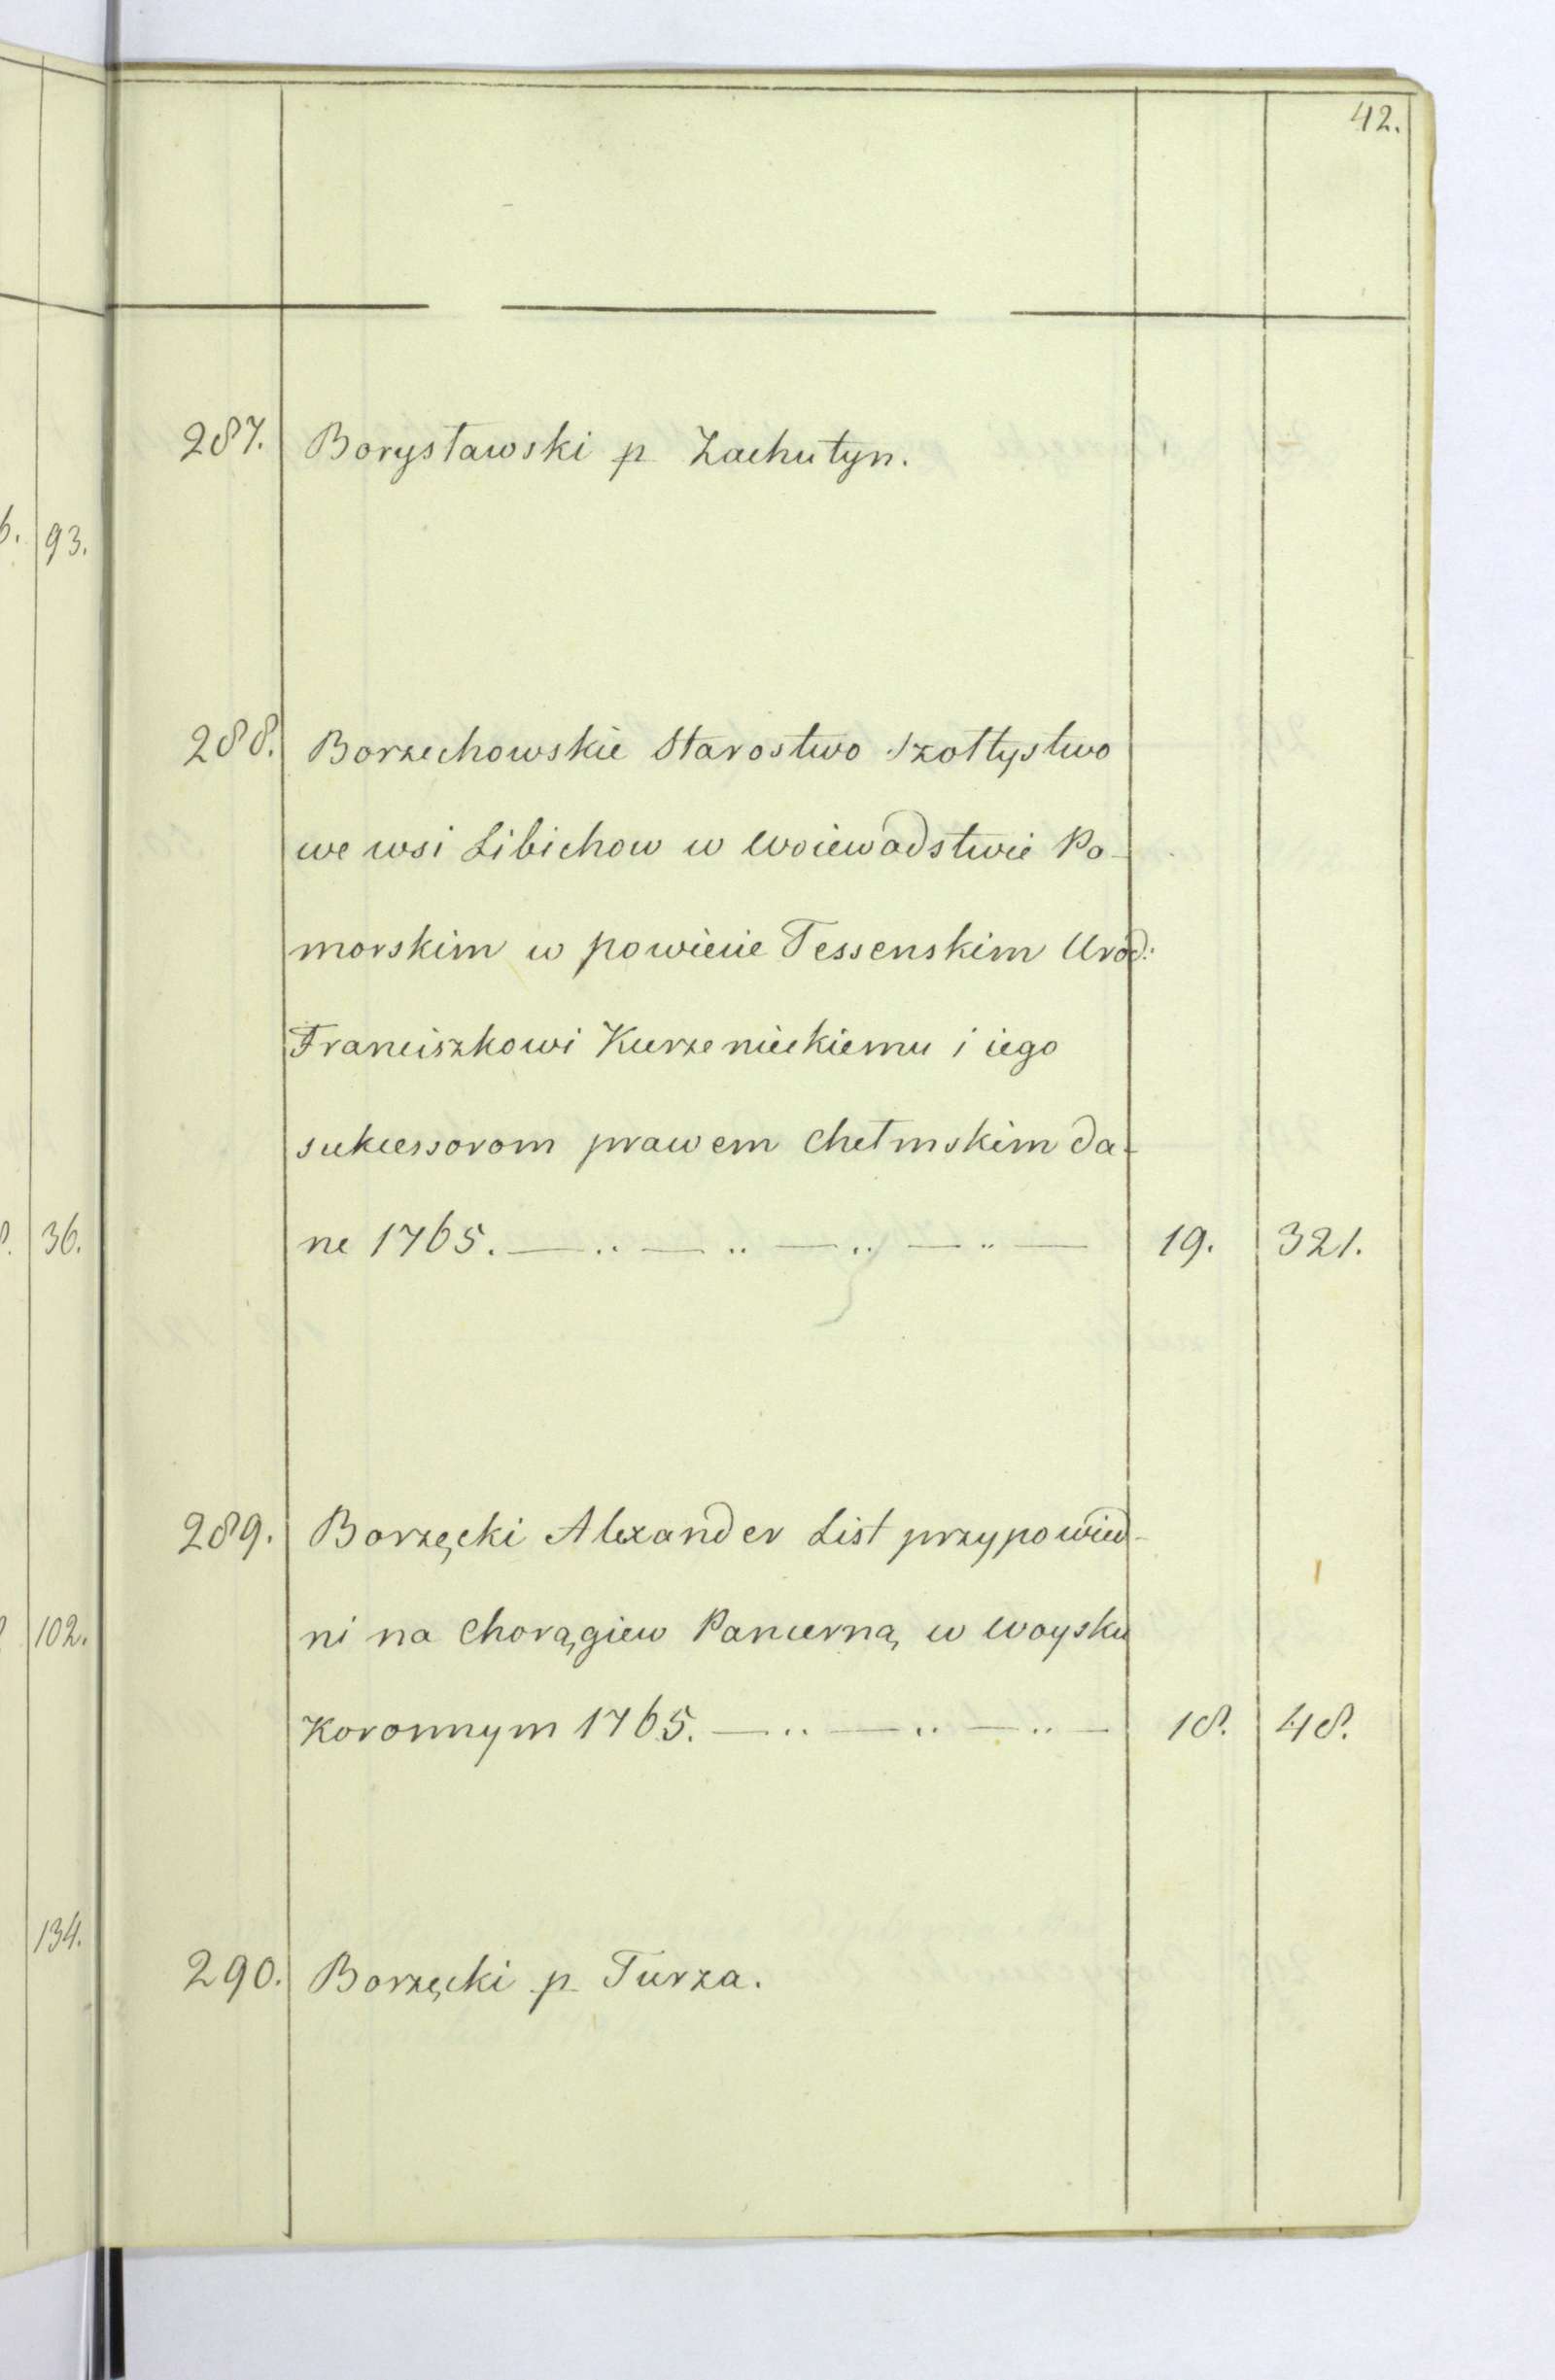 42.
287. Borysławski p Zachutyn.
6. 93.
288. Borzechowskie Starostwo Szołtystwo
we wsi Libichow w Woiewodstwie Po-
morskim w powiecie Tessenskim Urod:
Franciszkowi Kurzenieckiemu i iego
sukcessorom prawem Chełmskim da-
ne 1765. — .. — .. — .. — .. — 19. 321.
36.
289. Borzęcki Alexander List przypowied-
ni na Chorągiew Pancerną w Woysku
102.
Koronnym 1765. — .. — .. — .. — 18. 48.
134.
290. Borzęcki p Turza.